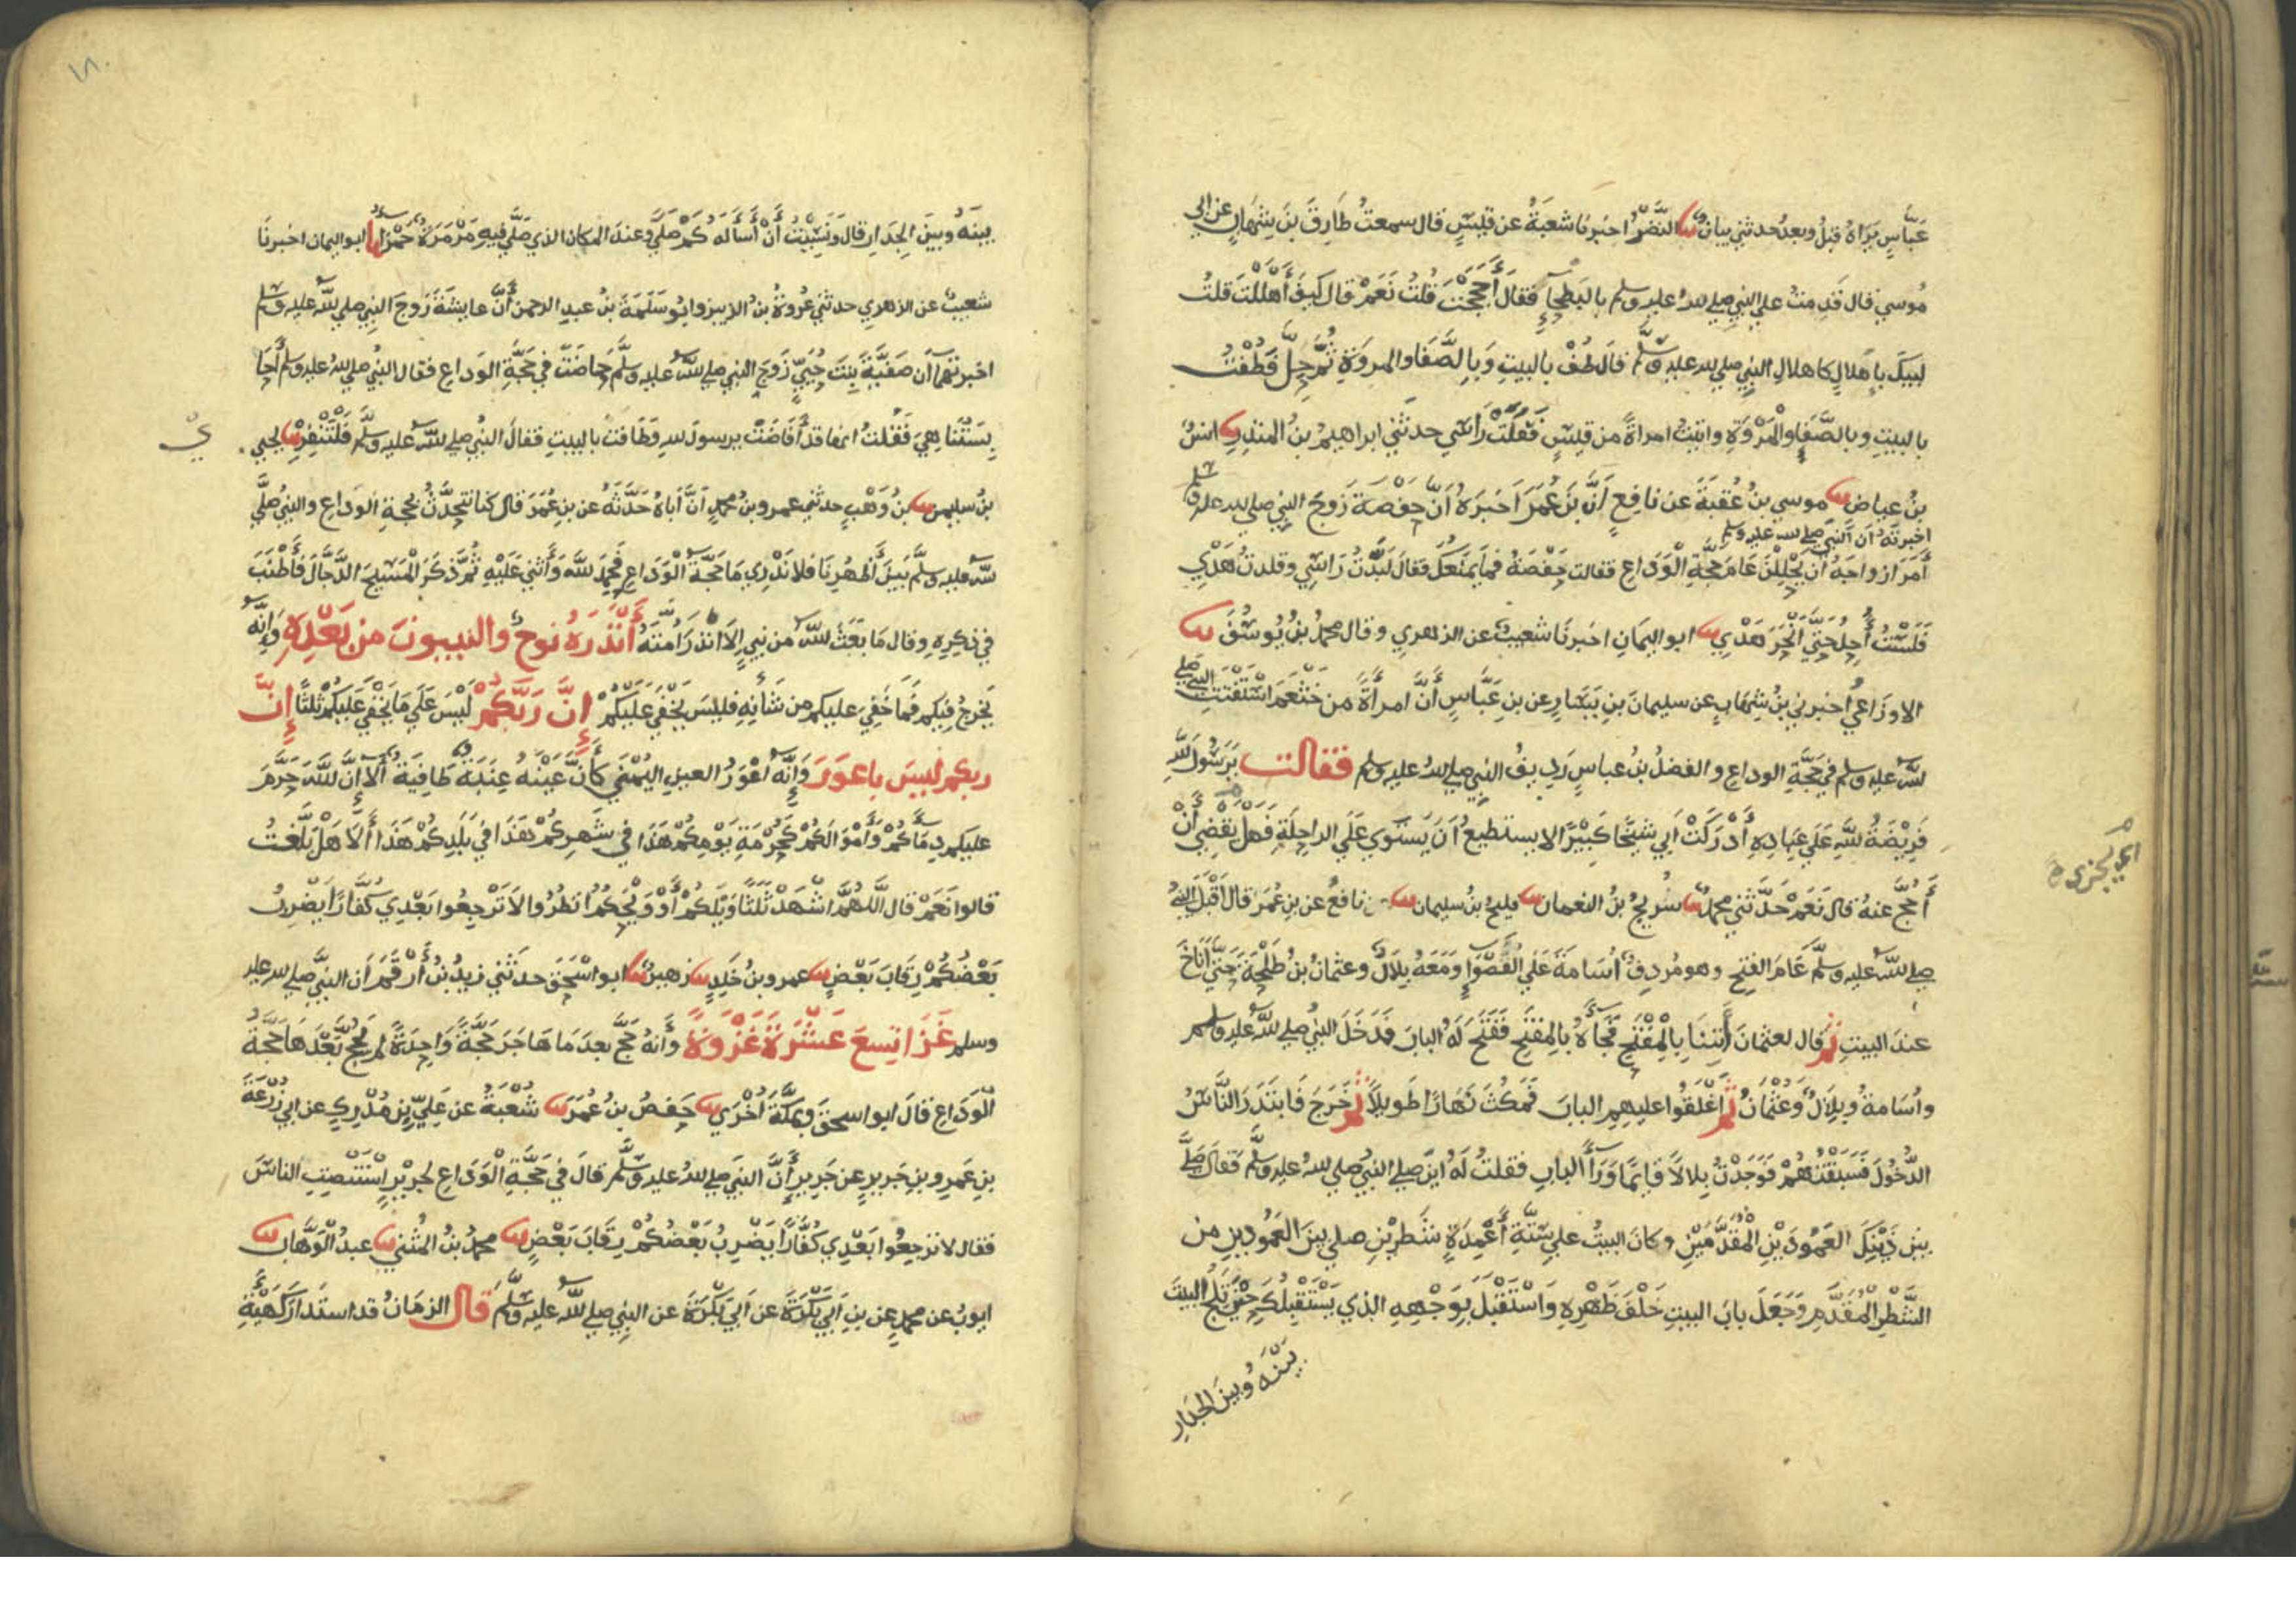 عَبَّاسٍ يَرَاهُ قبلُ وبعدُ حدثني بيانٌ ثنا النَّضْرُ اخبرنا شعبَةُ عن قيسٍ قال سمعتُ طَارِقَ بنَ شِهَابٍ عن ابي
مُوسي قال قَدِمتُ علي النبي صلي الله عليه وسلم بالبَطحاءِ فقالَ أَحَجَجْتَ قلتُ نَعَمْ قال كيفَ أَهْلَلْتَ قلتُ
لبيكَ باهلالٍ كاهلالِ النبي صلي الله عليه وسلم قال طُفْ بالبيتِ وَبِالصَّفَا والمروَةِ ثُمَّ حِلَّ فَطُفْتُ
بالبيتِ وبالصَّفَا والْمَرْوَةِ واتيتُ امراةً من قيسٍ فَفَلَتْ رَاسي حدثني ابراهيمُ بنُ المنذرِ ثنا انسُ
بنُ عياضٍ ثنا موسي بنُ عُقبَةَ عن نافعٍ أَنَّ بنَ عُمَرَ اَخبَرَهُ اَنَّ حفصَةَ زَوجَ النبي صلي الله عليه وسلم
اخبرتهُ ان النبي صلي الله عليه وسلم
أَمَرَ ازواجَهُ ان يَحْلِلْنَ عَامَ حَجَّةِ الْوَدَاعِ فقالت حَفْصَةُ فَمَا يَمْنَعُكَ فقالَ لَبَّدْتُ رَاسِي وقلدتُ هَدْيي
فَلَسْتُ أُحِلُّ حَتَّي أَنْحَرَ هَدْيي ثنا ابو اليمَانِ اخبرنَا شعيبٌ عن الزهري وقال محمدُ بنُ يُوسُفَ ثنا
الاوزَاعي اُخبرني بنُ شِهَابٍ عن سليمانَ بنِ يَسَارٍ عن بنِ عَبَّاسٍ أَنَّ امرأَةً من خَثْعَمَ اسْتَفْتَت النبي صلي
الله عليه وسلم في حَجَّةِ الوداعِ والفضلُ بنُ عباسٍ رديفُ النبي صلي الله عليه وسلم فقالت يرَسُولَ اللهِ
فَرِيْضَةُ اللهِ عَلَي عِبَادِهِ أَدْرَكَتْ اَبي شيخًا كَبِيْرًا لا يستطيعُ اَن يَستَوي عَلَي الراحِلَةِ فهل يَقضِي أَنْ
أَحُجَّ عنهُ قال نَعَمْ حَدَّثني محمدٌ ثنا سُريجُ بنُ النعمانِ ثنا فليحُ بنُ سليمان ثنا نافعٌ عن بنِ عُمَرَ قال اَقْبَلَ النبيُّ
صلي الله عليه وسلم عَامَ الفتحِ وهو مُردِفٌ اُسَامةَ عَلَي الْقَصْوَاءِ وَمَعَهُ بِلَالٌ وعثمانُ بنُ طَلْحَةَ حَتَّي أَنَاخَ
عندَ البيتِ ثم قال لعثمانَ أْتِنَا بِالْمِفْتَحِ فَجَاءَهُ بِالمِفتَحِ فَفَتَحَ لَهُ البابَ فَدَخَلَ النبيُّ صلي الله عليه وسلم
واُسَامةُ وبِلَالٌ وَعُثْمَانُ ثم اَغْلَقُوا عليهِم البابَ فَمَكُثَ نَهَارًا طَوِيلًا ثم خَرَجَ فَابتَدَرَ النَّاسُ
الدُّخُولَ فَسَبَقْتُهُمْ فَوَجَدْتُ بِلالًا قَائِمًا وَرَاءَ البابِ فقلتُ لَهُ اينَ صلي النبيُّ صلي الله عليه وسلم فَقَالَ صَلَّي
بين ذَيْنِكَ العَمُودَيْنِ الْمُقَدَّمَيْنِ وكانَ البيتُ علي سِتَّةِ أَعْمِدَةٍ سَطرَيْنِ صلي بينَ العَمُودينِ من
السَّطْرِ الْمُقَدَّمِ وَجَعَلَ بابَ البيتِ خَلْفَ ظَهْرِهِ وَاسْتَقْبَلَ بِوَجْهِهِ الذي يَسْتَقْبِلُكَ حِيْنَ تَلِجُ البيتَ
بَيْنَهُ وبينَ الجدارِ
اي يجزي
بينَهُ وبينَ الجِدَارِ قال وَنَسِيْتُ أَنْ أَسْأَلَهُ كَمْ صَلَّي وعندَ المكانِ الذي صَلَّي فيهِ مَرْمَرَةٌ حَمْرَاءُ ثنا ابو اليمان اخبرنَا
شعيبٌ عن الزهري حدثني عُروةُ بنُ الزبير وابُو سَلَمَةَ بنُ عبدِ الرحمن أَنَّ عايشَةَ زَوجَ النبي صلي الله عليه وسلم
اخبرتهُما أن صَفيَّةَ بنتَ حُيَيٍّ زَوجَ النبي صلي الله عليه وسلَّم حَاضَتْ في حَجَّةِ الوَداعِ فقال النبيُّ صلي الله عليه وسلم أَحَا
بِسَتُنَا هِيَ فَقُلتُ انها قد أَفَاضَتْ يرسولَ اللهِ وَطَافَتْ بالبيتِ فقالَ النبيُّ صلي الله عليه وسلم فَلْتَنْفِرْ ثنا يحيي
يُ
بنُ سليمنَ ثنا بنُ وَهْبٍ حدثني عمرو بنُ محمدٍ اَنَّ أَباهُ حَدَّثَهُ عن بنِ عُمَرَ قال كنا نتحدَّثُ بحجةِ الوَداعِ والنبيُّ صلَّي
الله عليه وسلَّم بَينَ أَظْهُرِنَا فلا نَدْرِي مَا حَجَّةُ الْوَدَاعِ فَحَمِدَ اللهَ وَأَثني عَلَيْهِ ثُمَّ ذكَرَ الْمَسِيْحَ الدَّجَّالَ فَأَطْنَبَ
في ذِكِرِهِ وقال مَا بَعَثَ اللهُ من نبيٍّ إِلَّا انذَرَ اُمتَهُ أَنْذَرَهُ نوحٌ والنبيونَ من بَعْدِهِ وَإِنَّهُ
يَخرجُ فيكم فَمَا خَفِيَ عليكم من شَأنِهِ فليسَ يَخْفَي عَلَيْكُمْ إِنَّ رَبَّكُمْ لَيْسَ عَلَي مَا يَخْفَي عَلَيكُمْ ثلثًا إِنَّ
ربكم ليسَ باعورَ وَإِنَّهُ أَعْوَرُ العينِ اليُمْني كَأَنَّ عَيْنَهُ عِنَبَةٌ طَافِيَةٌ أَلَا إِنَّ اللهَ حَرَّمَ
عليكم دِمَاءَكُمْ وَأَمْوَالَكُمْ كَحُرْمَةِ يَوْمِكُمْ هَذَا في شَهرِكُمْ هَذَا في بَلَدِكُمْ هَذَا أَلَا هَلْ بَلَّغتُ
قالوا نَعَمْ قال اللَّهُمَّ اشْهَدْ ثَلَثًا وَيْلَكُمْ أَوْ وَيْحَكُمُ انْظُرُوا لَا تَرْجِعُوا بَعْدِي كُفَّارًا يَضْرِبُ
بَعْضُكُمْ رِقَابَ بَعْضٍ ثنا عمرو بنُ خَلِدٍ ثنا زهيرٌ ثنا ابو اسْحَقَ حدثني زيدُ بنُ أَرْقَمَ اَن النبيَّ صلي الله عليه
وسلم غَزَا تِسعَ عَشْرَةَ غَزْوَةً وَأَنَّهُ حَجَّ بعدَ مَا هَاجَرَ حَجَّةً وَاحِدَةً لم يَحُجَّ بَعْدَهَا حَجَّةَ
الْوَدَاعِ قالَ ابو اسحقَ وَبِمَكَّةَ أُخْرَي ثنا حفصُ بنُ عُمَرَ ثنا شُعْبَةُ عن عَلِيِّ بنِ مُدْرِكٍ عن ابي زُرْعَةَ
بنِ عَمرِو بنِ جَرِيرٍ عن جَرِيرٍ أَنَّ النبيَ صلي الله عليه وسلَّم قالَ في حَجَّةِ الْوَدَاعِ لجرِيْرٍ اسْتَنْصِتِ الناسَ
فقال لا تَرجِعُوا بَعْدِي كُفَّارًا يَضْرِبُ بَعْضُكُمْ رِقَابَ بَعْضٍ ثنا محمدُ بنُ المثني ثنا عبدُ الْوَهَّابِ ثنا
ايوبُ عن محمدٍ عن بنِ اَبي بَكْرَةَ عن اَبي بَكْرَةَ عن النبي صلي الله عليه وسلم قال الزمَانُ قد استَدارَ كَهَيْئَةِ
١٨٠